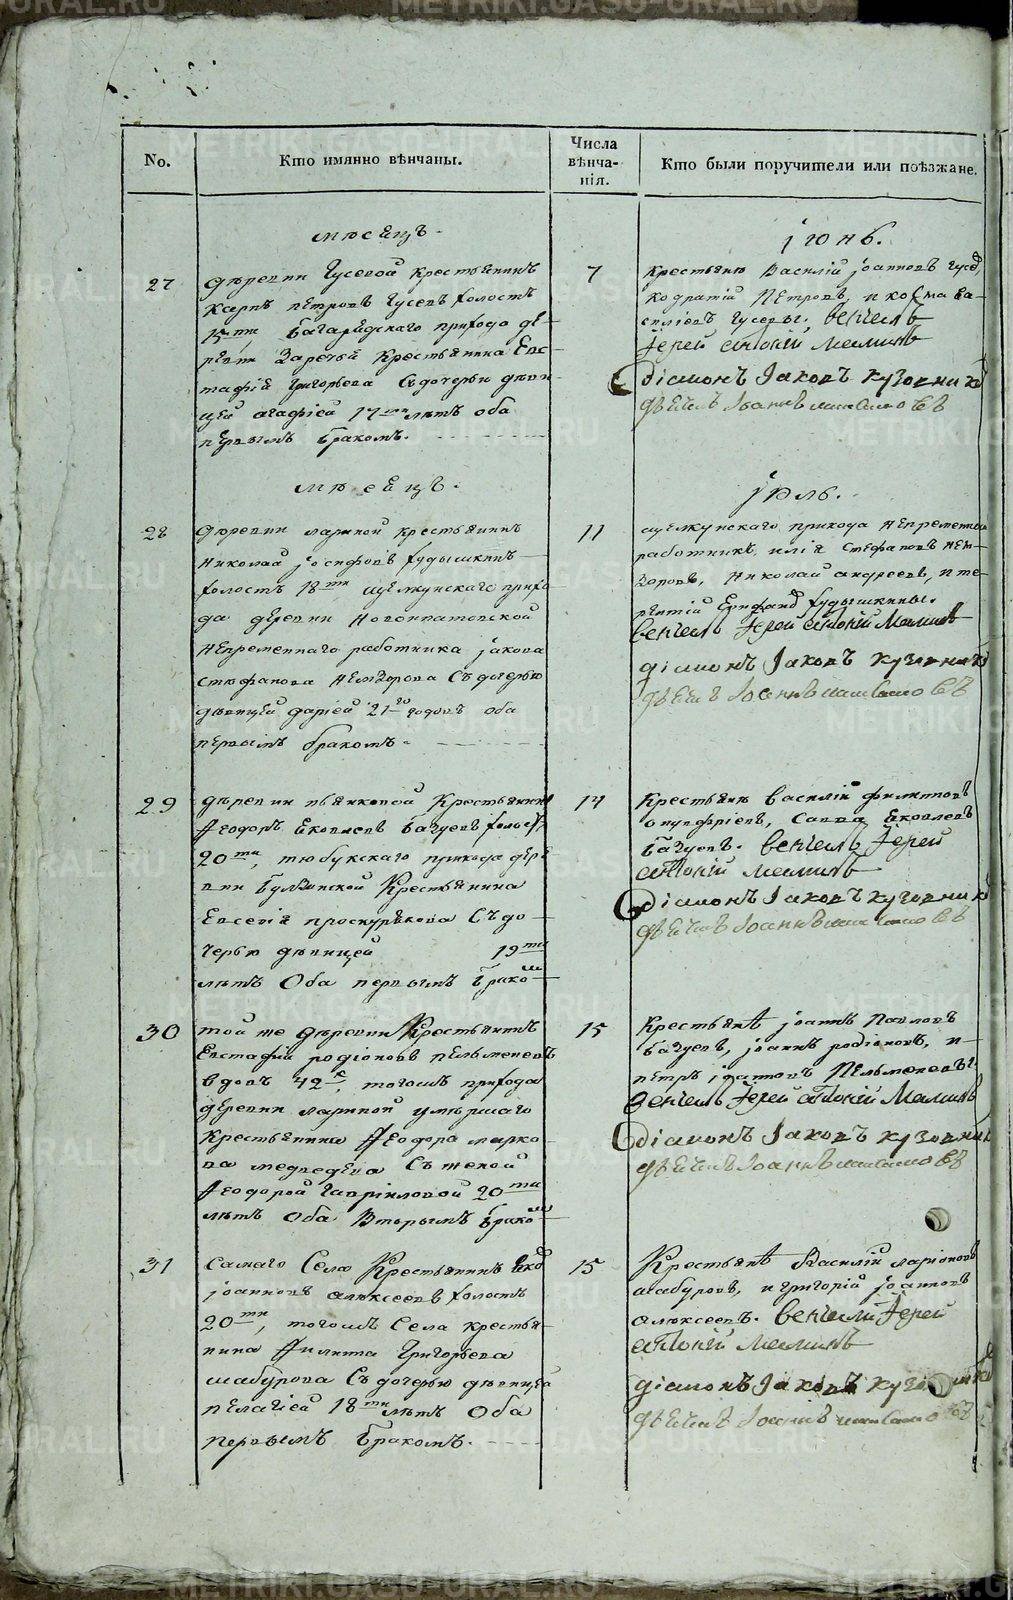 No.
Кто имянно вѣнчаны.
Числа
вѣнча-
нія.
Кто были поручители или поѣзжане.
мѣсецъ.
іюнь.
27
деревни Гусевой крестьянинъ
карпъ петровъ Гусевъ холостъ
Багаряцкаго прихода де-
ревни Заречой крестьянина Евс-
тафія Григорьева Съ дочерью деви-
цей агафіей 17 лѣтъ оба
первымъ бракомъ.
7
крестьяне Василій іоанновъ
кодратій Петровъ, и козма ва-
силіевъ Гусевы. венчалъ
Іерей антоній Маминъ
діаконъ Іаковъ кузовник
дьячикъ Іоаннъ
мѣсецъ.
іюль.
28
деревни лариной крестьянинъ
николай іосифовъ кудышкинъ
холостъ 18 щелкунскаго прихо
да деревни новоипатовской
непременнаго работника іакова
стефанова Съ дочерью
девицей дарьей 21 годовъ оба
первымъ бракомъ.
11
щелкунскаго прихода непременны
работники, илія стефановъ
николай андреевъ, и те-
рентій кудышкины.
венчалъ Іерей антоній Маминъ
діаконъ Іаковъ кузовник
дьячикъ Іоаннъ
29
деревни пьянковой Крестьянинъ
Ѳеодоръ Яковлевъ Бачуевъ холостъ
20, тюбукскаго прихода дере
вни Булзинской Крестьянина
Евсевія проскурякова Съ до-
черью девицей 19
лѣтъ Оба первымъ бракомъ
14
Крестьяне василій филиповъ
онуфріевъ, савва Яковлевъ
Бачуев. венчалъ Іерей
антоній маминъ
діаконъ Іаковъ кузовник
дьячикъ Іоаннъ
30
той же деревни Крестьянинъ
Евстафій родіоновъ пельменевъ
вдовъ 42, тогожъ прихода
деревни лариной умершаго
крестьянина Ѳеодора марко-
ва медведева Съ женой
Ѳеодорой Гавріиловой 20
лѣтъ Оба вторымъ бракомъ
15
Крестьяне іоаннъ Павловъ
бачуевъ, іоаннъ родіоновъ, и
петръ Пельменевы.
венчалъ Іерей антоній Маминъ
діаконъ Іаковъ кузовник
дьячикъ Іоаннъ
31
самаго Села Крестьянинъ
іоанновъ алексеевъ холостъ
20, тогожъ Села крестья-
нина Филипа Григорьева
шабурова Съ дочерью девицей
пелагіей 18 лѣтъ Оба
первымъ бракомъ.
15
Крестьяне Василій ларіоновъ
шабуровъ, и григорій іоанновъ
алексеевъ. венчалъ Іерей
антоній маминъ
діаконъ Іаковъ
дьячикъ Іоаннъ
METRIKI.GASO-URAL.RU